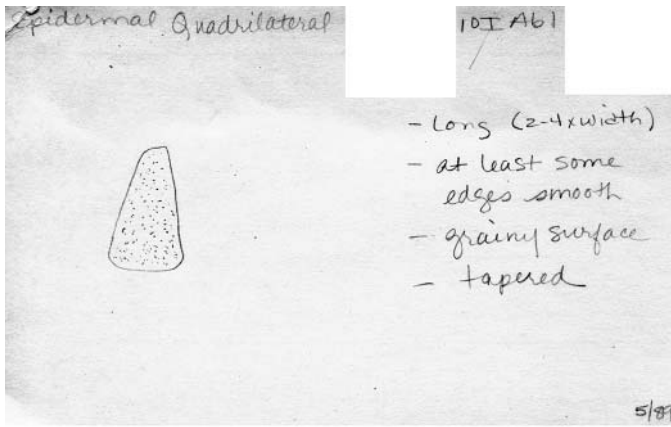 Epidermal Quadrilateral
10I Ab1
- Long (2-4xwidth)
- at least some
edges smooth
- grainy surface
- tapered
5/89